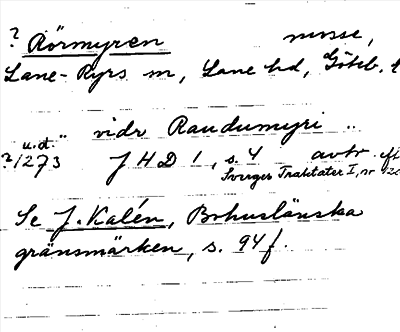 ? Rörmyren mosse,
Lane-Ryrs sn, Lane hd, Göteb. l
u.d. " vidr Raudumyri ..
?/273 JHD 1, s. 4 avtr. eft
Sveriges Traktater I, nr
Se J. Kalén, Bohuslänska
gränsmärken, s. 94 f.